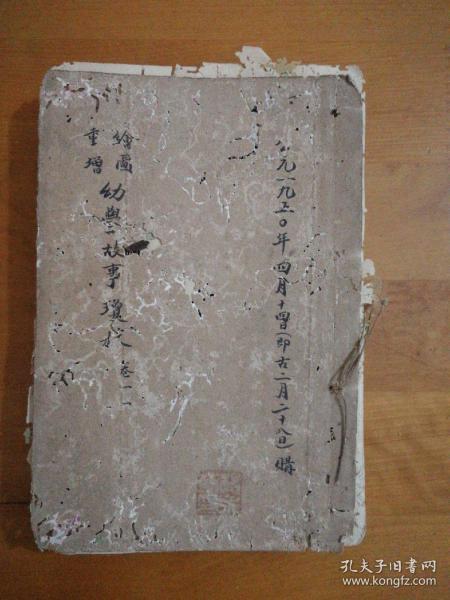 公元一九五〇年四月十四日(即古二月二十八日)購
繪圖
重增
幼學故事瓊林
卷
孔夫子旧书网
www.kongfz.com